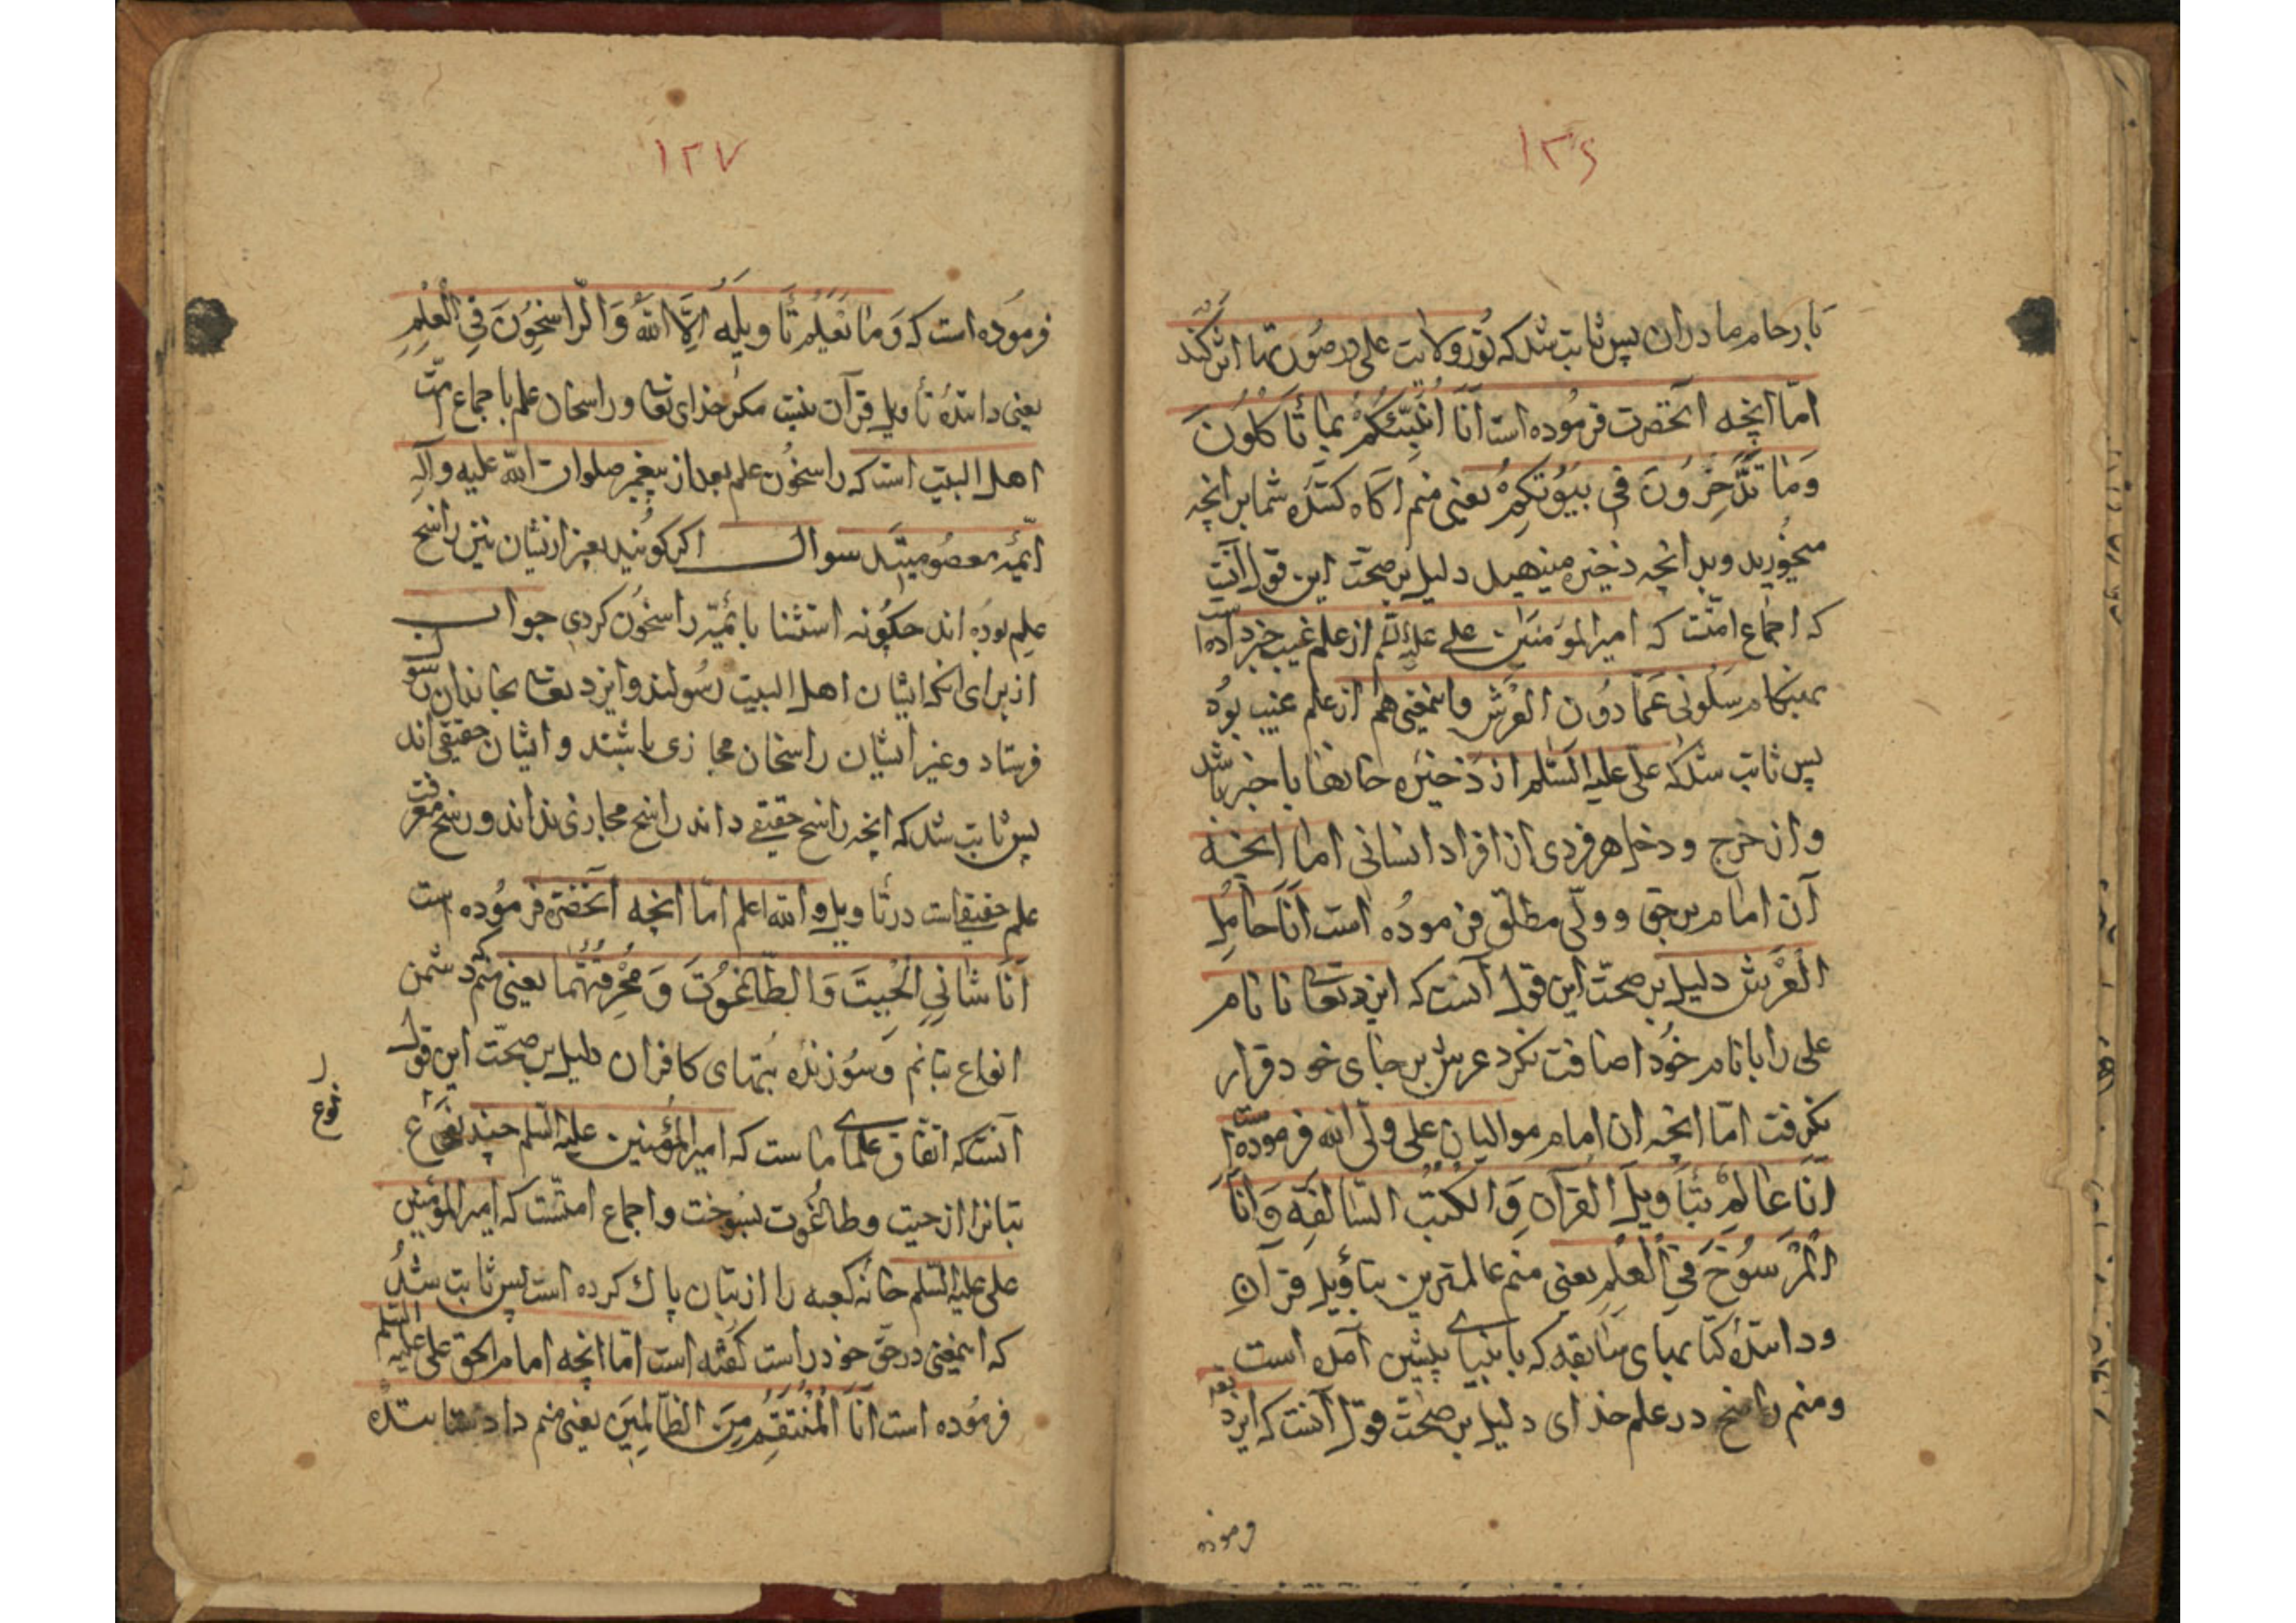 ۱۲۶
بارحام مادران پس ثابت شد که نور ولایت علی در صورتها اثر کند
امّا انچه آنحضرت فرموده است اَنَا اُنَبِّئُكُمْ بِمَا تَأكُلُونَ
وَمَا تَدَّخِرُونَ فِی بُیُوتِكُمْ یعنی منم آگاه کننده شما بر انچه
میخورید و بدانچه ذخیره مینهید دلیل بر صحّت این قول آنست
که اجماع امّتست که امیرالمؤمنین علی علیه السلم از علم غیب خبر داده است
بهنگام سَلُونی عَمَّا دُونَ الْعَرْشِ واینمعنی هم از علم غیب بوده
پس ثابت شد که علی علیه السّلم از ذخیره خانها باخبر باشد
و از خرج و دخل هر فردی از افراد انسانی امّا انچه
آن امام برحق و ولّی مطلق فرموده است اَنَا حَامِلُ
الْعَرْشِ دلیل بر صحّت این قول آنست که ایزد تعا تا نام
علی را با نام خود اضافت نکرد عرش بر جای خود قرار
نگرفت امّا انچه ان امام موالیان علی ولی الله فرموده است
اَنَا عَالِمٌ بِتَأوِیلِ الْقُرآنِ وَالْكُتُبِ السَّالِفَهِ وَ اَنَا
الْمَرْسُوخُ فِی الْعِلْمِ یعنی منم عالمترین بتأویل قرآن
و دانندۀ کتابهای سابقه که بانبیای پیشین آمده است
و منم راسخ در علم خدای دلیل بر صحّت قول آنست که ایزد تعه
فرموده
۱۲۷
فرموده است که وَمَا یَعْلَمُ تَأوِیلَهُ اِلَّا اللّهُ وَالرَّاسِخُونَ فِی الْعِلْمِ
یعنی دانندۀ تأویل قرآن نیست مکر خدای تعا و راسخان علم باجماع امّت
اهل البیت است که راسخون علم بعد از پیغمبر صلوات الله علیه وآله
ایمّۀ معصومینند سوال اکر کویند بغیر از یشان نیز راسخ
علم بوده اند چکونه استثنا بائمّه راسخون کردی جواب
از برای انکه ایشان اهل البیت رسولند و ایزد تعا بخاندان رسول
فرستاد و غیر ایشان راسخان مجازی باشند و ایشان حقیقی اند
پس ثابت شد که انچه راسخ حقیقی داند راسخ مجازی نداند و رسخ معرفت
علم حقیقی است در تأویل و الله اعلم امّا انچه آنحضرة فرموده است
اَنَا شَانِیِ الْجِبْتَ وَالطَّاغُوتَ وَ مُحْرِقُهُمَا یعنی منم دشمن
انواع بتانم و سوزندۀ بتهای کافران دلیل بر صحّت این قول
آنست که اتّفاق علمای ماست که امیرالمؤمنین علیه السّلم چند نوع
نوع
بتانرا از جبت و طاغوت بسوخت و اجماع امتّست که امیرالمؤمنین
علی علیه السّلم خانۀ کعبه را از بتان پاك کرده است پس ثابت شد
که اینمعنی در حقّ خود راست کفته است امّا انچه امام الحق علی علیه السّلم
فرموده است اَنَا الْمُنْتَقِمُ مِنَ الظَّالِمِینَ یعنی منم داد ستاننده